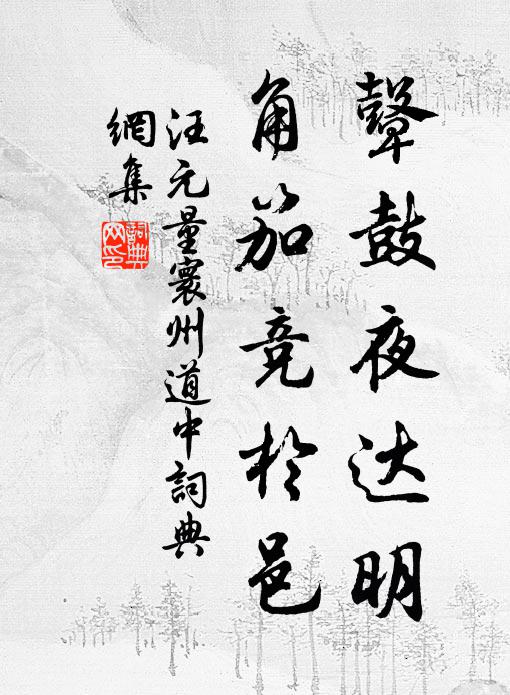 鼙鼓夜达明
角笳竞於邑
汪元量寰州道中詞典
網集
詞典
网印